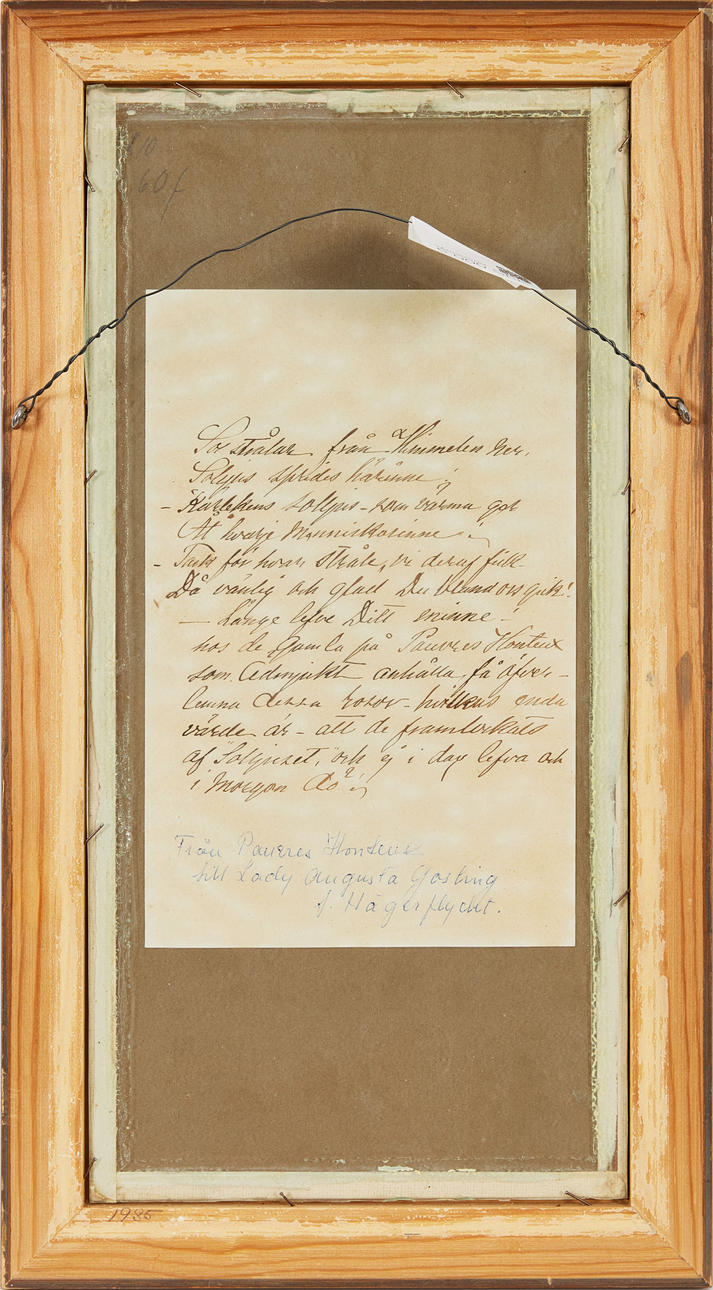 60/
Sol strålar från Himmelen ner,
Solljus sprides härinne;
- Kärlekens solljus - som värma ger
Åt hvarje Menniskosinne.
- Tack för hvar stråle, vi deraf fick
Då vänlig och glad Du bland oss gick!
- Länge lefve Ditt minne -
hos de Gamla på Pauvres Honteux
som ödmjukt anhålla få öfver-
lemna dessa rosor - hvilkas enda
värde är - att de framlockats
af "Solljuset," och ej "i dag lefva och
i Morgon dö".
Från Pauvres Honteux
till Lady Augusta Gosling
f. Hägerflycht.
1935